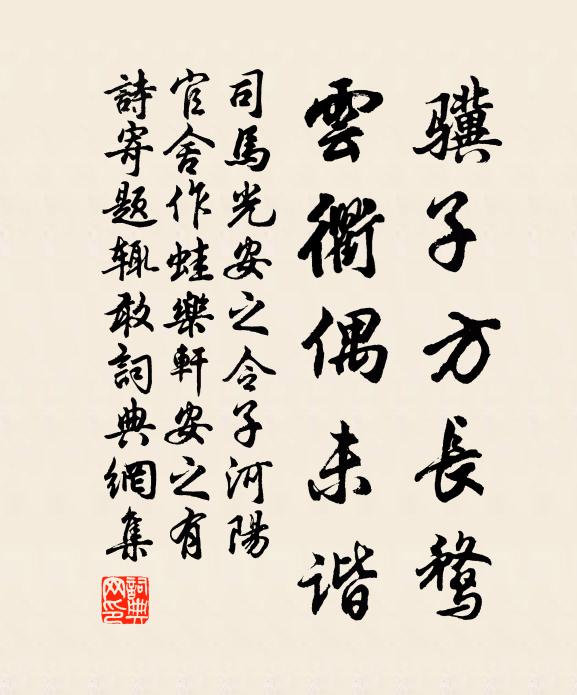 骥子方長鶩
雲衢偶未谐
司馬光安之令子河陽
官舍作蛙樂軒安之有
詩寄題輒敢詞典網集
詞典網印